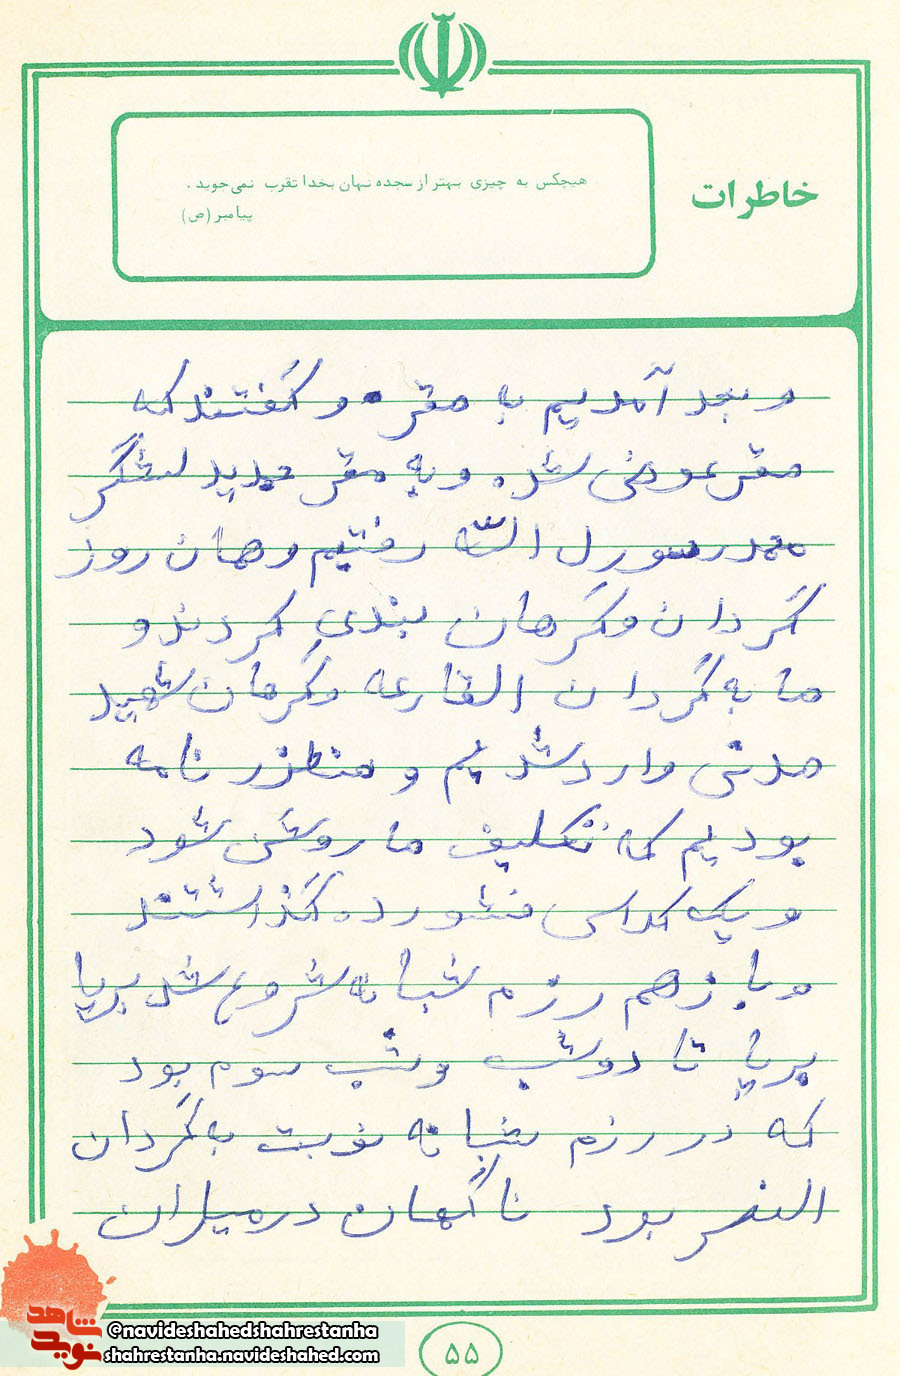 خاطرات
هیچکس به چیزی بهتر از سجده نهان بخدا تقرب نمی‌جوید .
پیامبر (ص)
و بعد آمدیم به مقر و گفتند که
مقر عوض شده و به مقر جدید لشگر
محمد رسورل الله رفتیم و همان روز
گردان و گرهان بندی کردند و
ما به گردان القارعه و گرهان شهید
مدنی وارد شدیم و منظزر نامه
بودیم که تکلیف ما روشن شود
و یک کلاسی فشورده گذاشتند
و باز هم رزم شبانه شروع شد برپا
برپا تا دو شب و شب سوم بود
که در رزم شبانه نوبت به گردان
النصر بود ناگهان در میاران
شاهد
نوید
©navideshahedshahrestanha
shahrestanha.navideshahed.com
۵۵